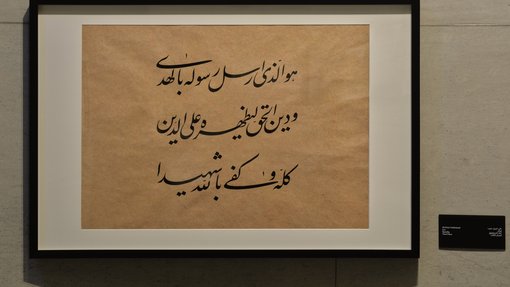 هو الذی ارسل رسوله بالهدی
و دین الحق لیظهره علی الدین
کله و کفی بالله شهیدا